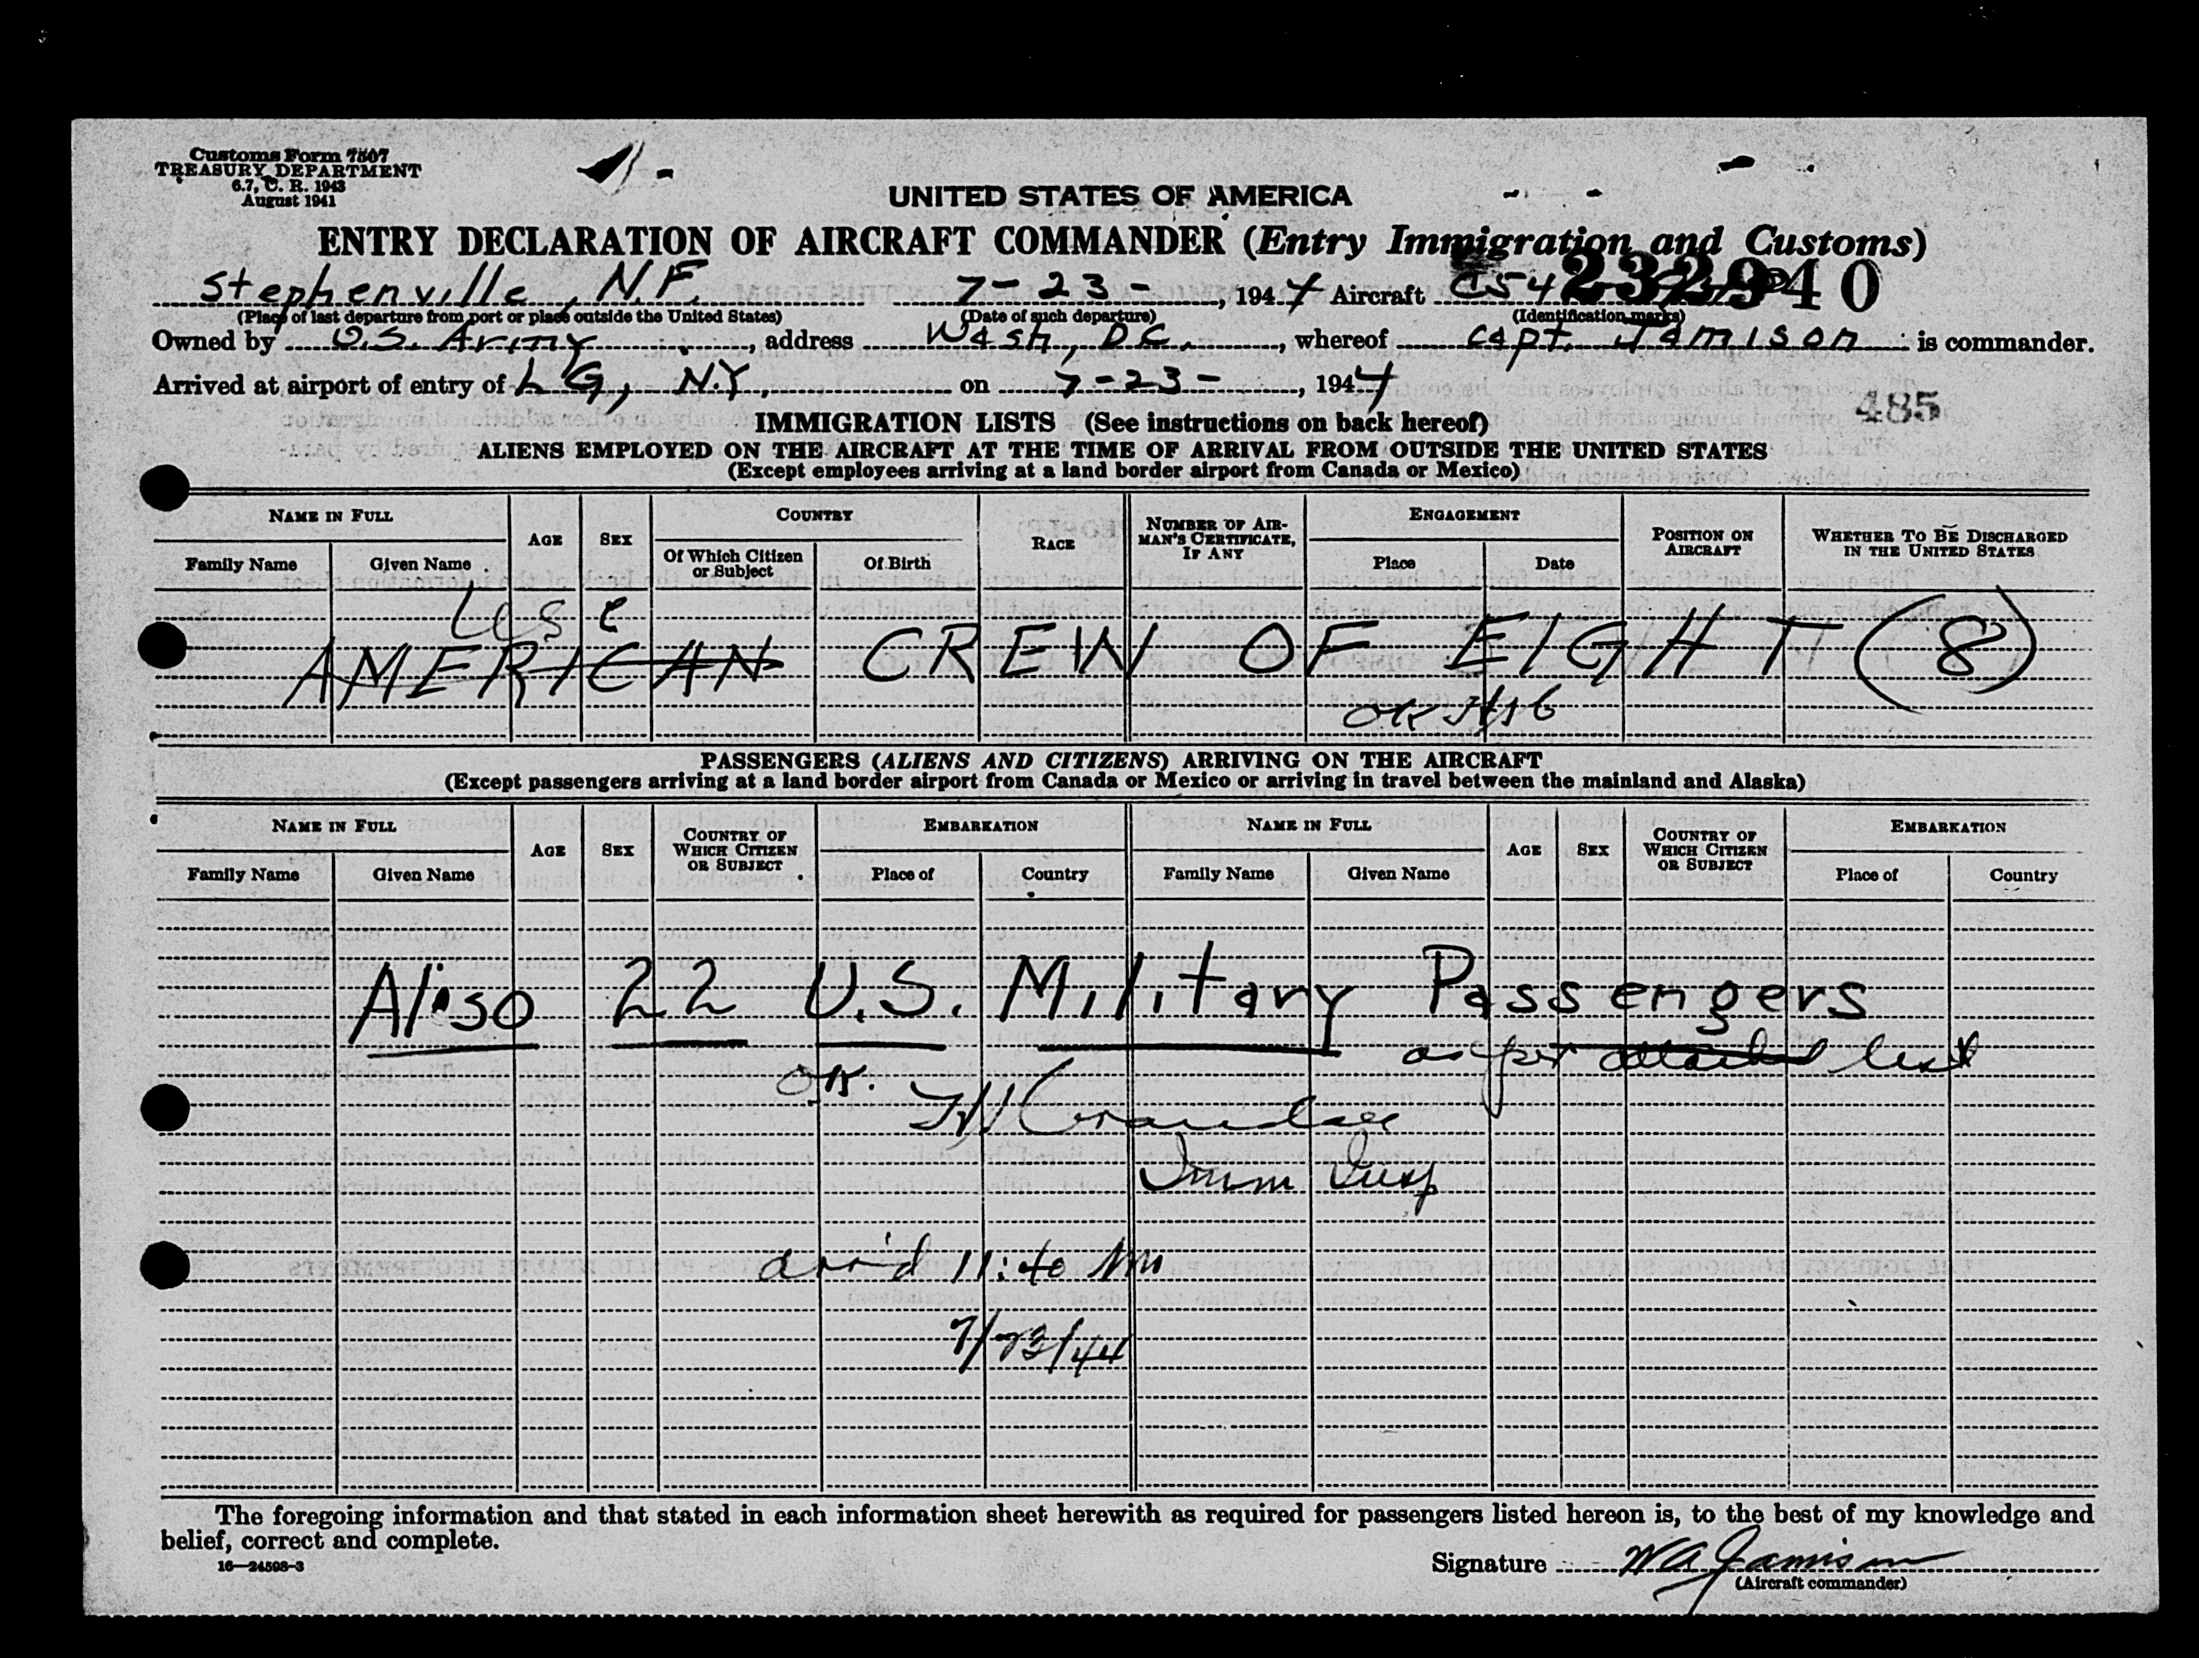 Customs Form 7507
TREASURY DEPARTMENT
6.7, C. R. 1943
August 1941
UNITED STATES OF AMERICA
ENTRY DECLARATION OF AIRCRAFT COMMANDER (Entry Immigration and Customs)
Stephenville, N.F. 7-23-, 1944 Aircraft C54 232940
(Place of last departure from port or place outside the United States) (Date of such departure) (Identification marks)
Owned by U.S. Army, address Wash, D.C., whereof Capt. Jamison is commander.
Arrived at airport of entry of L G, N.Y., on 7-23-, 1944
485
IMMIGRATION LISTS (See instructions on back hereof)
ALIENS EMPLOYED ON THE AIRCRAFT AT THE TIME OF ARRIVAL FROM OUTSIDE THE UNITED STATES
(Except employees arriving at a land border airport from Canada or Mexico)
NAME IN FULL AGE SEX COUNTRY RACE NUMBER OF AIRMAN'S CERTIFICATE, IF ANY ENGAGEMENT POSITION ON AIRCRAFT WHETHER TO BE DISCHARGED IN THE UNITED STATES
Family Name Given Name Of Which Citizen or Subject Of Birth Place Date
AMERICAN CREW OF EIGHT (8)
OK
PASSENGERS (ALIENS AND CITIZENS) ARRIVING ON THE AIRCRAFT
(Except passengers arriving at a land border airport from Canada or Mexico or arriving in travel between the mainland and Alaska)
NAME IN FULL AGE SEX COUNTRY OF WHICH CITIZEN OR SUBJECT EMBARKATION NAME IN FULL AGE SEX COUNTRY OF WHICH CITIZEN OR SUBJECT EMBARKATION
Family Name Given Name Place of Country Family Name Given Name Place of Country
Also 22 U.S. Military Passengers
as per attached list
OK.
Imm Insp
arr'd 11:40
7/23/44
The foregoing information and that stated in each information sheet herewith as required for passengers listed hereon is, to the best of my knowledge and
belief, correct and complete.
16—24598-3
Signature W A Jamison
(Aircraft commander)